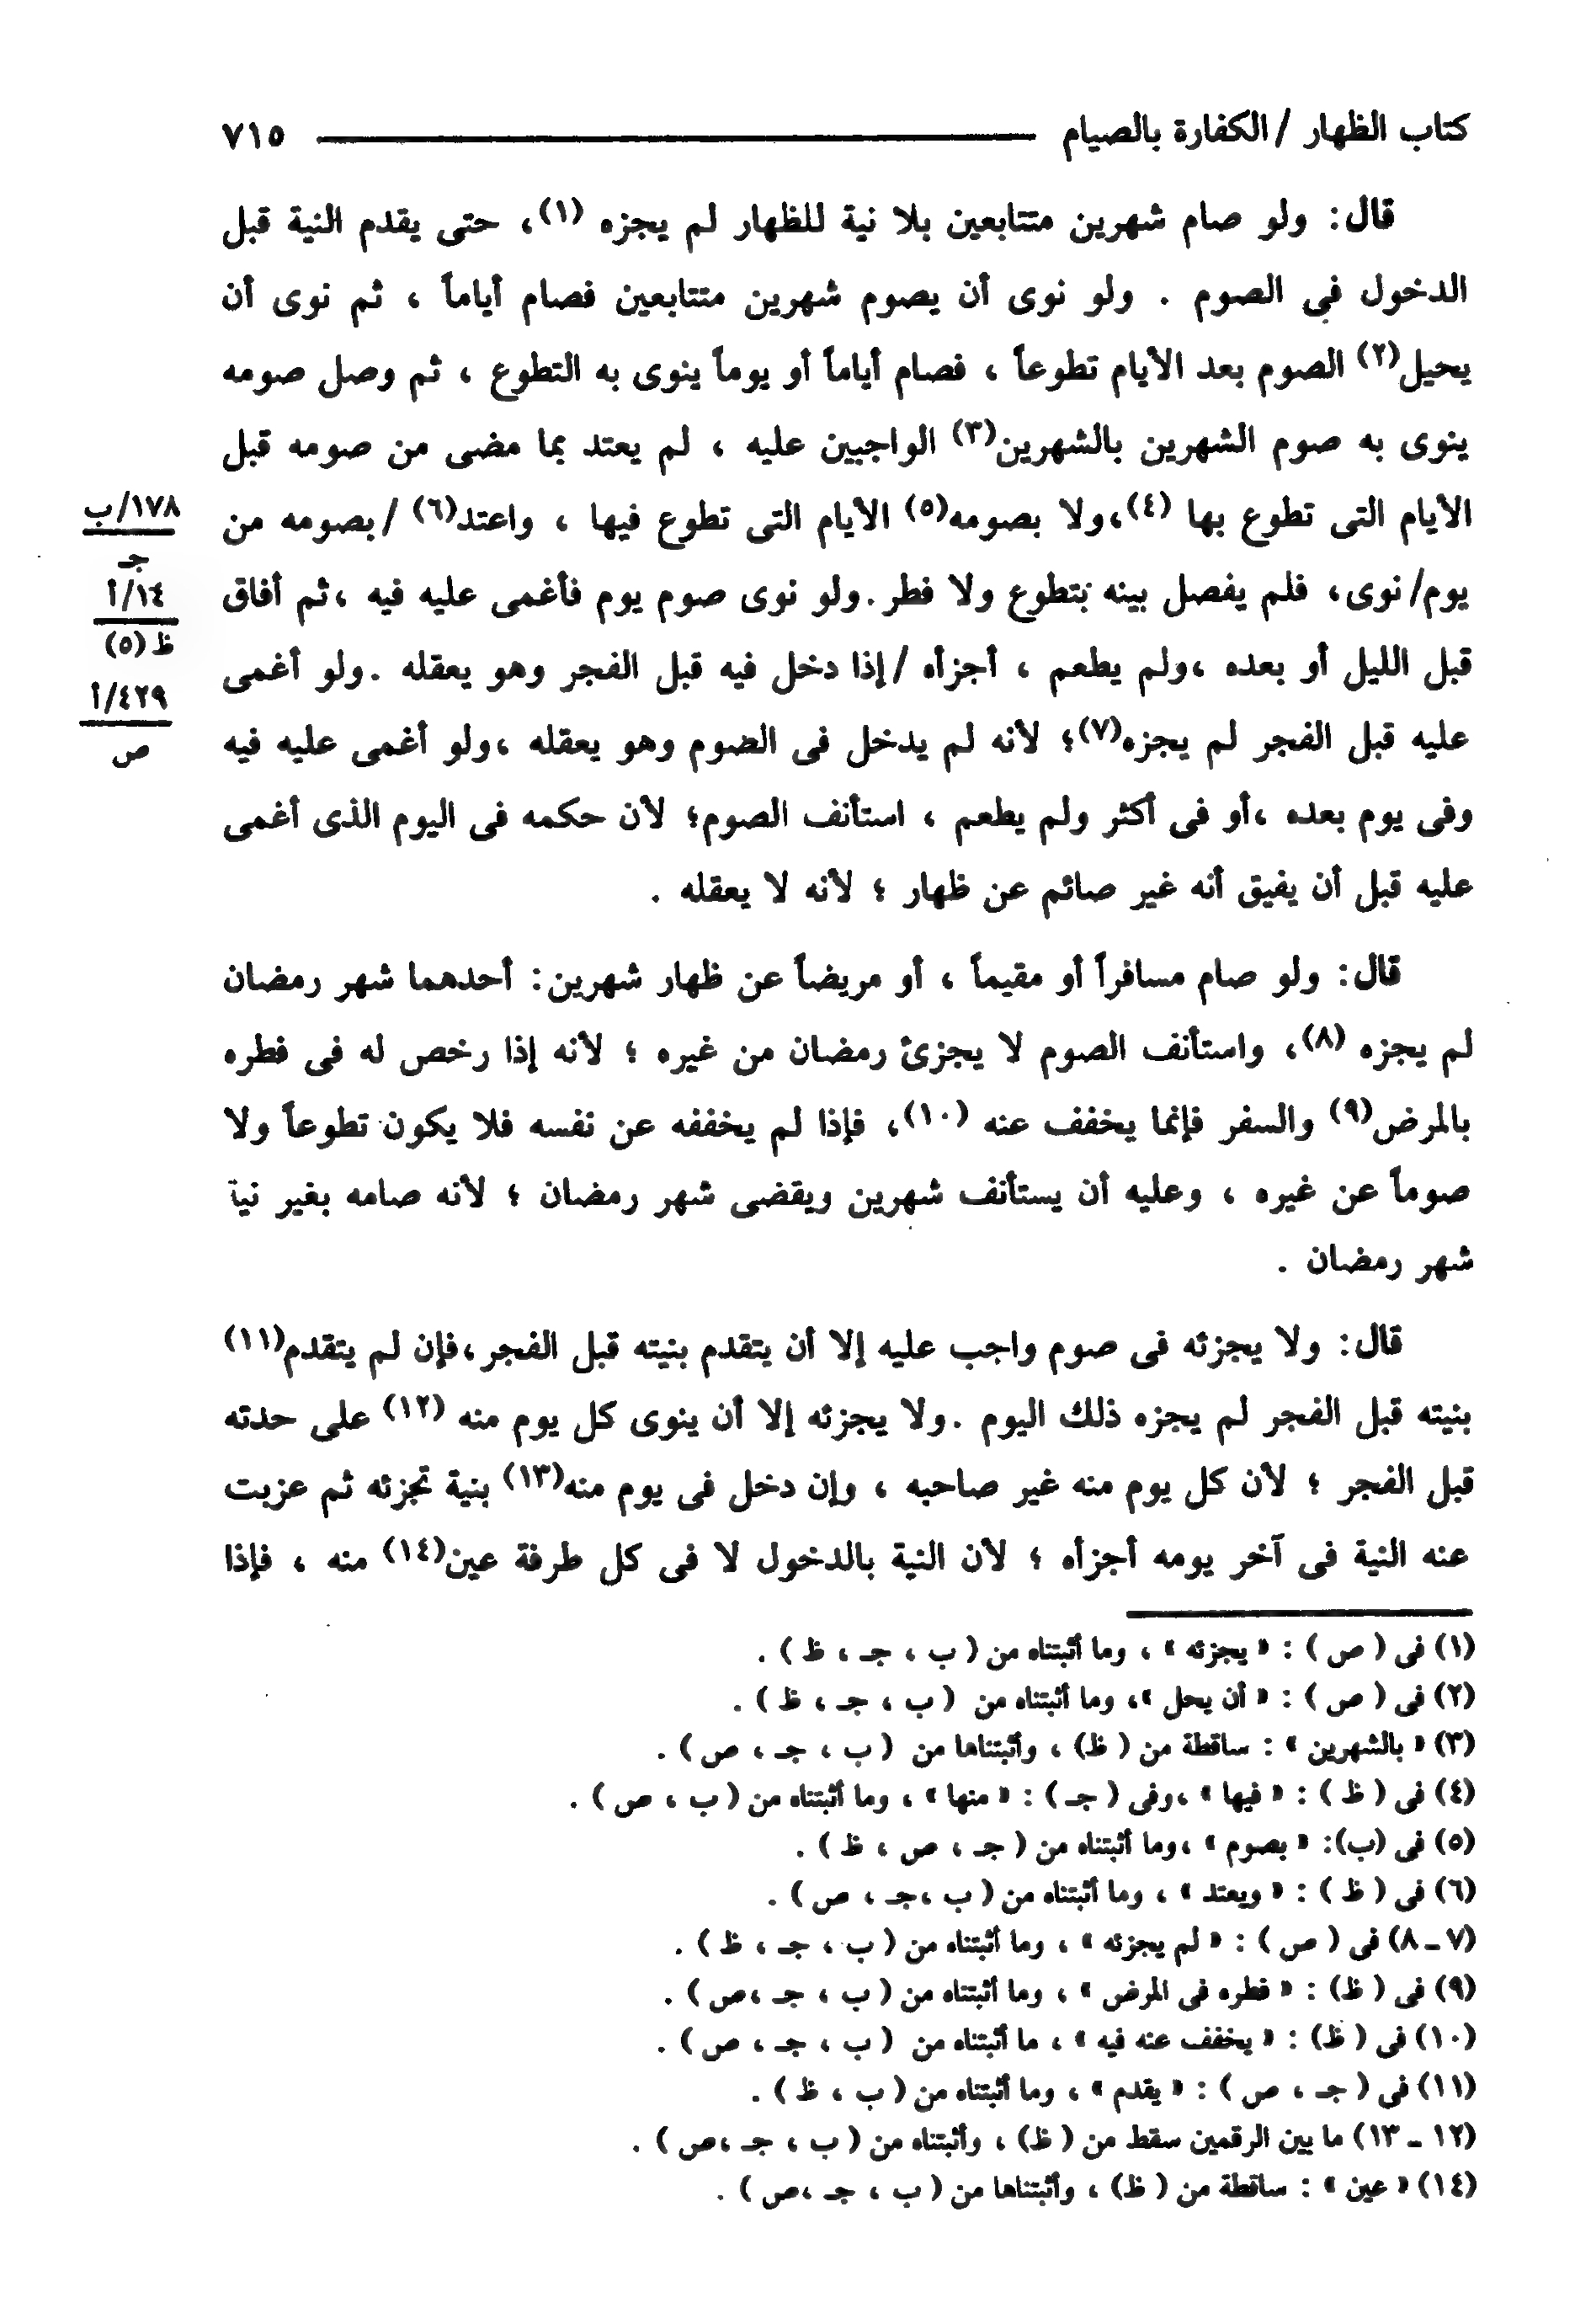 كتاب الظهار / الكفارة بالصيام ٧١٥
قال: ولو صام شهرين متتابعين بلا نية للظهار لم يجزه (١)، حتى يقدم النية قبل
الدخول فى الصوم . ولو نوى أن يصوم شهرين متتابعين فصام أياماً ، ثم نوى أن
يحيل(٢) الصوم بعد الأيام تطوعاً ، فصام أياماً أو يوماً ينوى به التطوع ، ثم وصل صومه
ينوى به صوم الشهرين بالشهرين(٣) الواجبين عليه ، لم يعتد بما مضى من صومه قبل
الأيام التى تطوع بها (٤)،ولا بصومه(٥) الأيام التى تطوع فيها ، واعتد(٦) /بصومه من
يوم/نوى، فلم يفصل بينه بتطوع ولا فطر.ولو نوى صوم يوم فأغمى عليه فيه ،ثم أفاق
قبل الليل أو بعده ،ولم يطعم ، أجزأه /إذا دخل فيه قبل الفجر وهو يعقله .ولو أغمى
عليه قبل الفجر لم يجزه(٧)؛ لأنه لم يدخل فى الصوم وهو يعقله ،ولو أغمى عليه فيه
وفى يوم بعده ،أو فى أكثر ولم يطعم ، استأنف الصوم؛ لأن حكمه فى اليوم الذى أغمى
عليه قبل أن يفيق أنه غير صائم عن ظهار ؛ لأنه لا يعقله .
١٧٨/ب
جـ
١٤/أ
ظ(٥)
٤٢٩/أ
ص
قال: ولو صام مسافراً أو مقيماً ، أو مريضاً عن ظهار شهرين: أحدهما شهر رمضان
لم يجزه (٨)، واستأنف الصوم لا يجزئ رمضان من غيره ؛ لأنه إذا رخص له فى فطره
بالمرض(٩) والسفر فإنما يخفف عنه (١٠)، فإذا لم يخففه عن نفسه فلا يكون تطوعاً ولا
صوماً عن غيره ، وعليه أن يستأنف شهرين ويقضى شهر رمضان ؛ لأنه صامه بغير نية
شهر رمضان .
قال: ولا يجزئه فى صوم واجب عليه إلا أن يتقدم بنيته قبل الفجر،فإن لم يتقدم(١١)
بنيته قبل الفجر لم يجزه ذلك اليوم .ولا يجزئه إلا أن ينوى كل يوم منه (١٢) على حدته
قبل الفجر ؛ لأن كل يوم منه غير صاحبه ، وإن دخل فى يوم منه(١٣) بنية تجزئه ثم عزبت
عنه النية فى آخر يومه أجزأه ؛ لأن النية بالدخول لا فى كل طرفة عين(١٤) منه ، فإذا
(١) فى ( ص ) : « يجزئه » ، وما أثبتناه من ( ب ، جـ ، ظ ) .
(٢) فى ( ص ) : « أن يحل »، وما أثبتناه من ( ب ، جـ ، ظ ) .
(٣) « بالشهرين » : ساقطة من ( ظ) ، وأثبتناها من ( ب ، جـ ، ص ) .
(٤) فى ( ظ ) : « فيها » ،وفى ( جـ ) : « منها » ، وما أثبتناه من ( ب ، ص ) .
(٥) فى (ب): « بصوم » ،وما أثبتناه من ( جـ ، ص ، ظ ) .
(٦) فى ( ظ ) : « ويعتد » ، وما أثبتناه من ( ب ،جـ ، ص ) .
(٧ ـ ٨) فى ( ص ) : « لم يجزئه » ، وما أثبتناه من ( ب ، جـ ، ظ ) .
(٩) فى ( ظ) : « فطره فى المرض » ، وما أثبتناه من ( ب ، جـ ،ص ) .
(١٠) فى ( ظ) : « يخفف عنه فيه » ، ما أثبتناه من ( ب ، جـ ، ص ) .
(١١) فى ( جـ ، ص ) : « يقدم » ، وما أثبتناه من ( ب ، ظ ) .
(١٢ ـ ١٣) ما بين الرقمين سقط من ( ظ) ، وأثبتناه من ( ب ، جـ ،ص ) .
(١٤) « عين » : ساقطة من ( ظ) ، وأثبتناها من ( ب ، جـ ،ص ) .